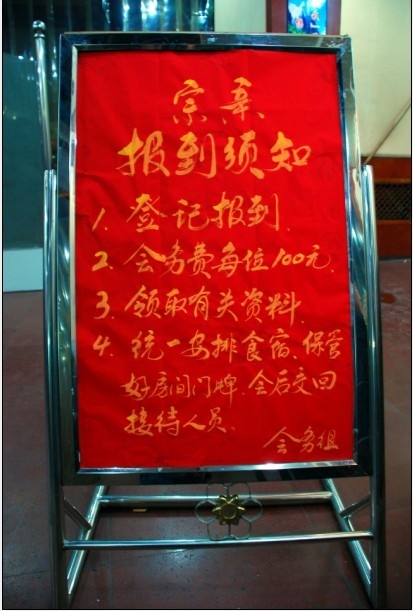 宗亲
报到须知
1、登记报到
2、会务费每位100元
3、领取有关资料
4、统一安排食宿、保管
好房间门牌、会后交回
接待人员.
会务组